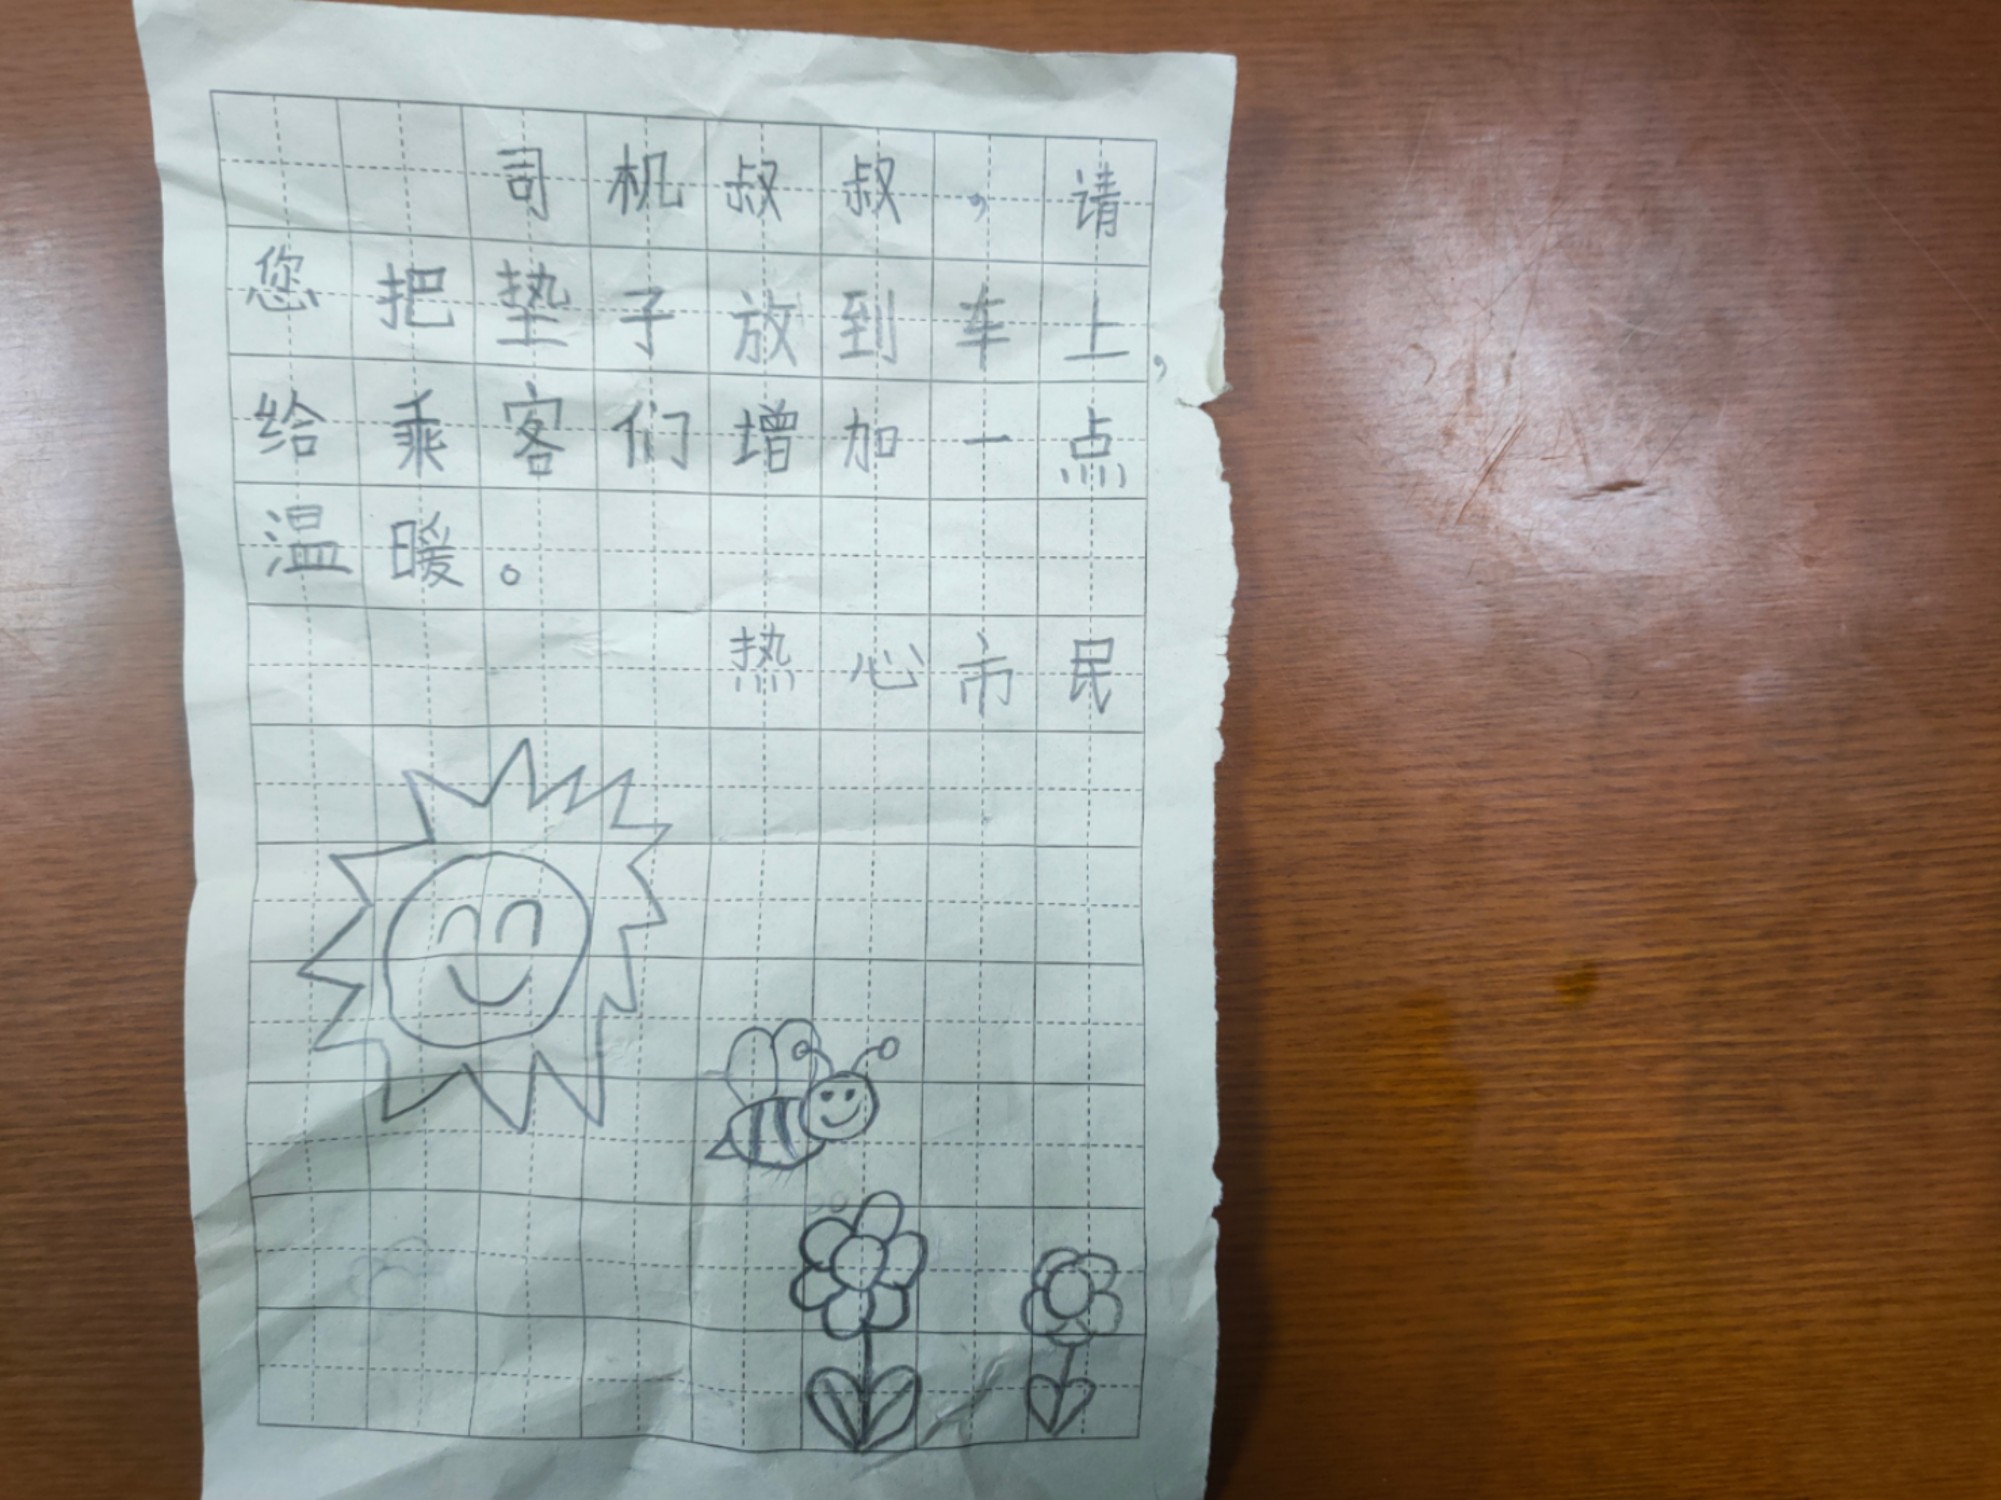 司机叔叔,请
您把垫子放到车上,
给乘客们增加一点
温暖。
热心市民